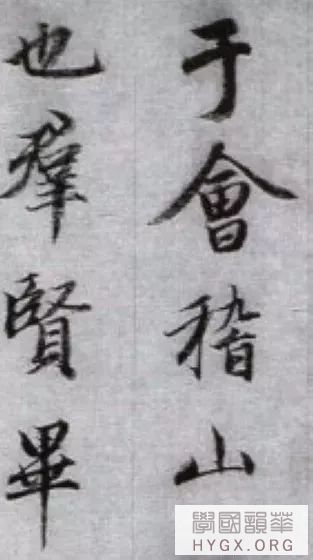 于會稽山
也羣賢畢
華韻國學
HYGX.ORG